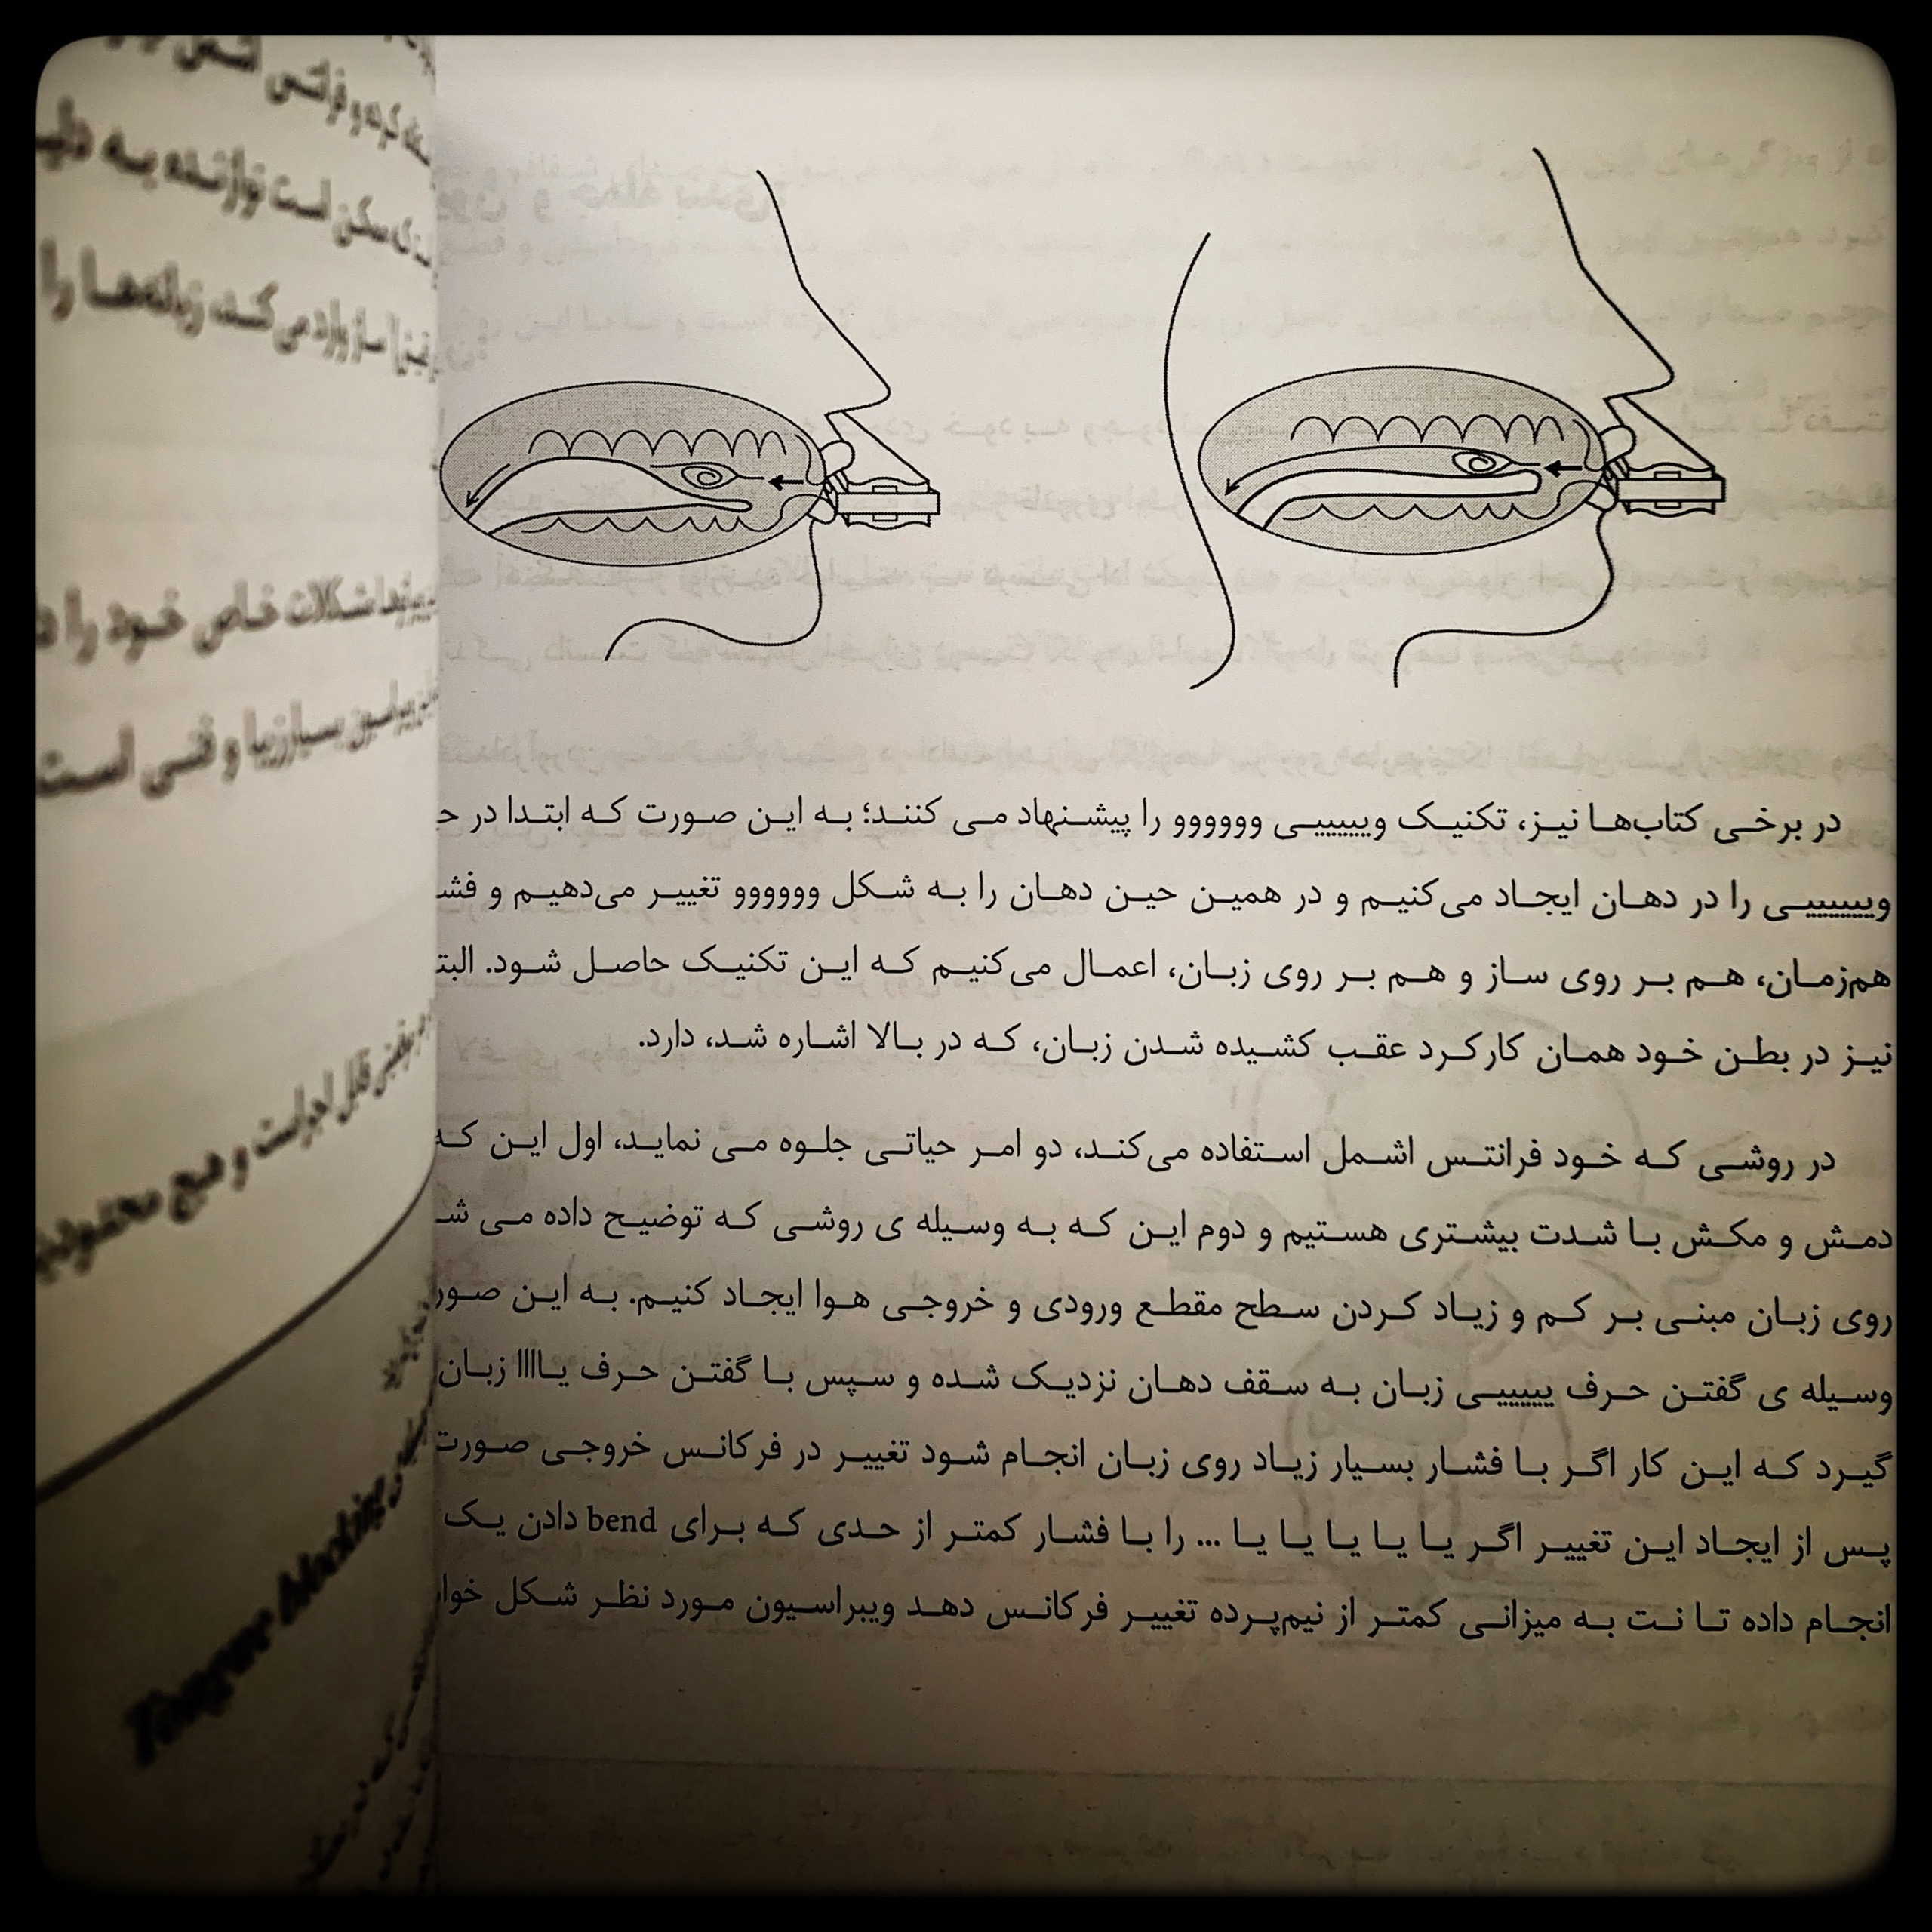 در برخی کتاب‌ها نیز، تکنیک وییییییی وووووو را پیشنهاد می کنند؛ به این صورت که ابتدا در
وییییییی را در دهان ایجاد می‌کنیم و در همین حین دهان را به شکل وووووو تغییر می‌دهیم و
هم‌زمان، هم بر روی ساز و هم بر روی زبان، اعمال می‌کنیم که این تکنیک حاصل شود.
نیز در بطن خود همان کارکرد عقب کشیده شدن زبان، که در بالا اشاره شد، دارد.
در روشی که خود فرانتس اشمل استفاده می‌کند، دو امر حیاتی جلوه می نماید، اول این که
دمش و مکش با شدت بیشتری هستیم و دوم این که به وسیله ی روشی که توضیح داده می
روی زبان مبنی بر کم و زیاد کردن سطح مقطع ورودی و خروجی هوا ایجاد کنیم. به این
وسیله ی گفتن حرف ییییییی زبان به سقف دهان نزدیک شده و سپس با گفتن حرف یاااا زبان
گیرد که این کار اگر با فشار بسیار زیاد روی زبان انجام شود تغییر در فرکانس خروجی صورت
پس از ایجاد این تغییر اگر یا یا یا یا یا یا ... را با فشار کمتر از حدی که برای bend دادن یک
انجام داده تا نت به میزانی کمتر از نیم‌پرده تغییر فرکانس دهد ویبراسیون مورد نظر شکل
است نوازنده به
ساز وارد می‌کند، زبانه‌ها را
مشکلات خاص خود را
بسیار زیبا و فنی است
Tongue blocking